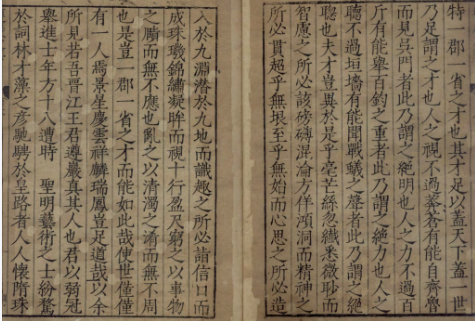 特一郡一省之才也其才足以蓋天下蓋一世
乃足謂之才也人之視不過有能自齊魯
而見吳門者此乃謂之絕明也人之力不過百
斤有能舉百鈞之重者此乃謂之絕力也人之
聰不過垣墻有能聞戰蟻之聲者此乃謂之絕
聰也夫才豈異於是乎毫芒絲忽纖悉微眇而
智慮之所必該磅礴混淪方佯澒洞而精神之
所必貫超乎無垠至乎無始而心思之所必造
入於九淵潛於九地而識趣之所必詣信口而
成珠璣錦繡凝眸而視十行盈尺窮之以事物
之賾而無不應也亂之以清濁之淆而無不周
也是豈一郡一省之才而能如此哉使世僅僅
有一人焉景星慶雲祥麟瑞鳳豈是道哉以余
所見若吾晉江王君遵巖真其人也君以弱冠
舉進士年方十八遭時 聖明藝術之士紛騖
於詞林才藻之彥馳騁於皇路者人人懷隋珠